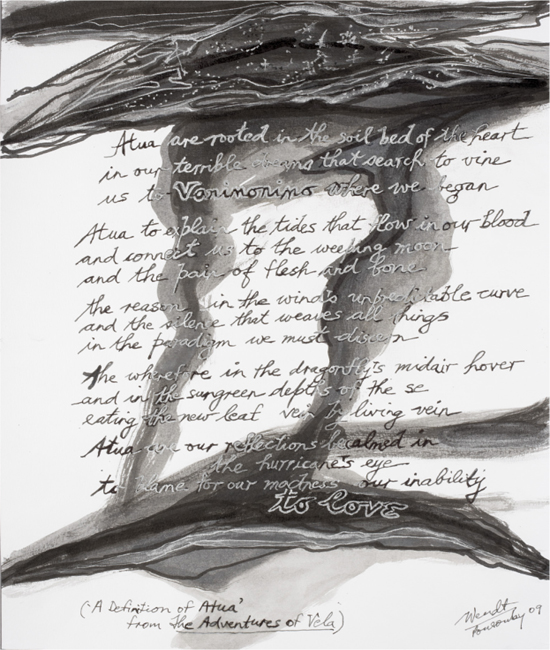 Atua are rooted in the soil bed of the heart
in our terrible dreams that search to vine
us to Vanimonimo where we began
Atua to explain the tides that flow in our blood
and connect us to the weeping moon
and the pain of flesh and bone
the reason in the wind's unpredictable curve
and the silence that weaves all things
in the paradigm we must discern
the wherefore in the dragonfly's midair hover
and in the sungreen depths of the sea
eating the new leaf vein by living vein
Atua our reflections becalmed in
the hurricane's eye
to blame for our madness our inability
to love
('A Definition of Atua'
from The Adventures of Vela)
Wendt
Ponsonby 09